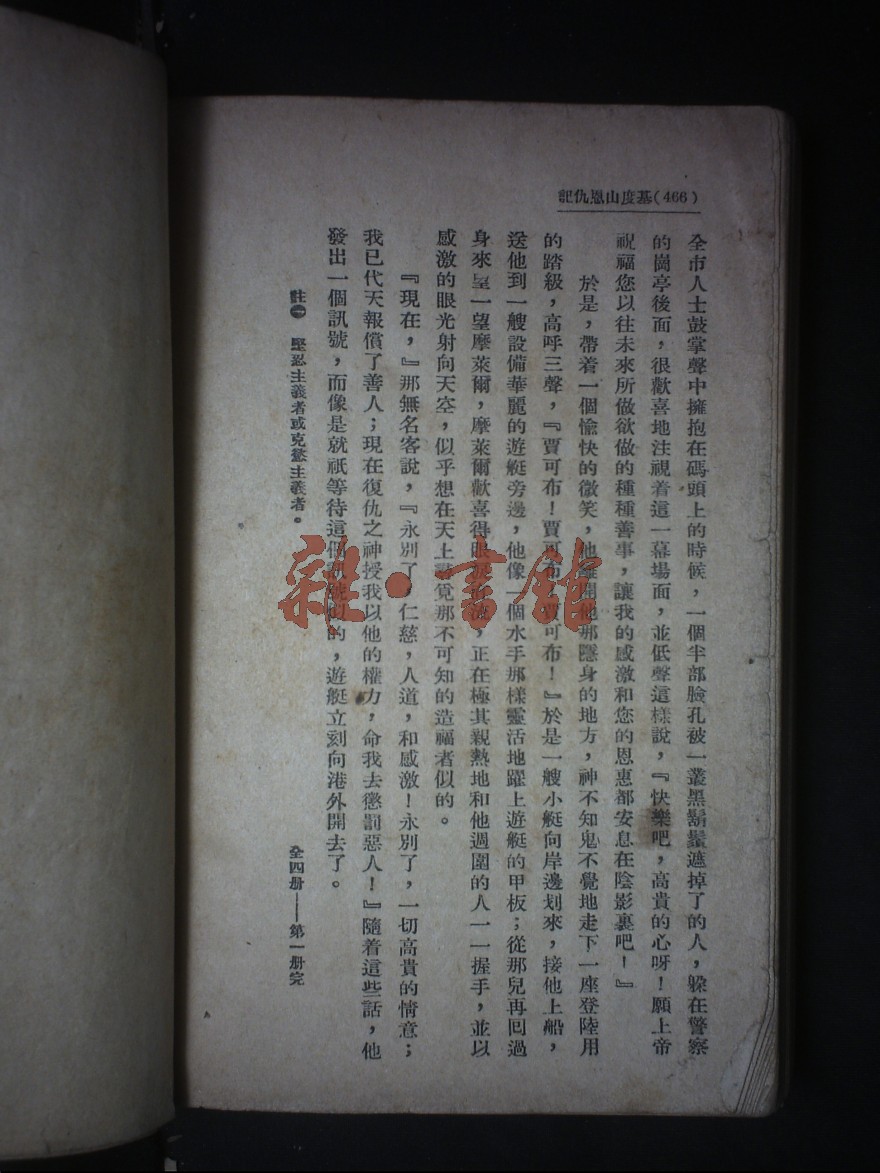 基度山恩仇記(466)
全市人士鼓掌聲中擁抱在碼頭上的時候，一個半部臉孔被一叢黑鬍鬚遮掉了的人，躲在警察
的崗亭後面，很歡喜地注視着這一幕場面，並低聲這樣說，『快樂吧，高貴的心呀！願上帝
祝福您以往未來所做欲做的種種善事，讓我的感激和您的恩惠都安息在陰影裏吧！』
於是，帶着一個愉快的微笑，他離開他那隱身的地方，神不知鬼不覺地走下一座登陸用
的踏級，高呼三聲，『賈可布！賈可布！賈可布！』於是一艘小艇向岸邊划來，接他上船，
送他到一艘設備華麗的遊艇旁邊，他像一個水手那樣靈活地躍上遊艇的甲板；從那兒再回過
身來望一望摩萊爾，摩萊爾歡喜得眼淚直流，正在極其親熱地和他週圍的人一一握手，並以
感激的眼光射向天空，似乎想在天上尋覓那不可知的造福者似的。
『現在，』那無名客說，『永別了，仁慈，人道，和感激！永別了，一切高貴的情意；
我已代天報償了善人；現在復仇之神授我以他的權力，命我去懲罰惡人！』隨着這些話，他
發出一個訊號，而像是就祇等待這個訊號似的，遊艇立刻向港外開去了。
註一 堅忍主義者或克慾主義者。
全四册——第一册完
雜·書館